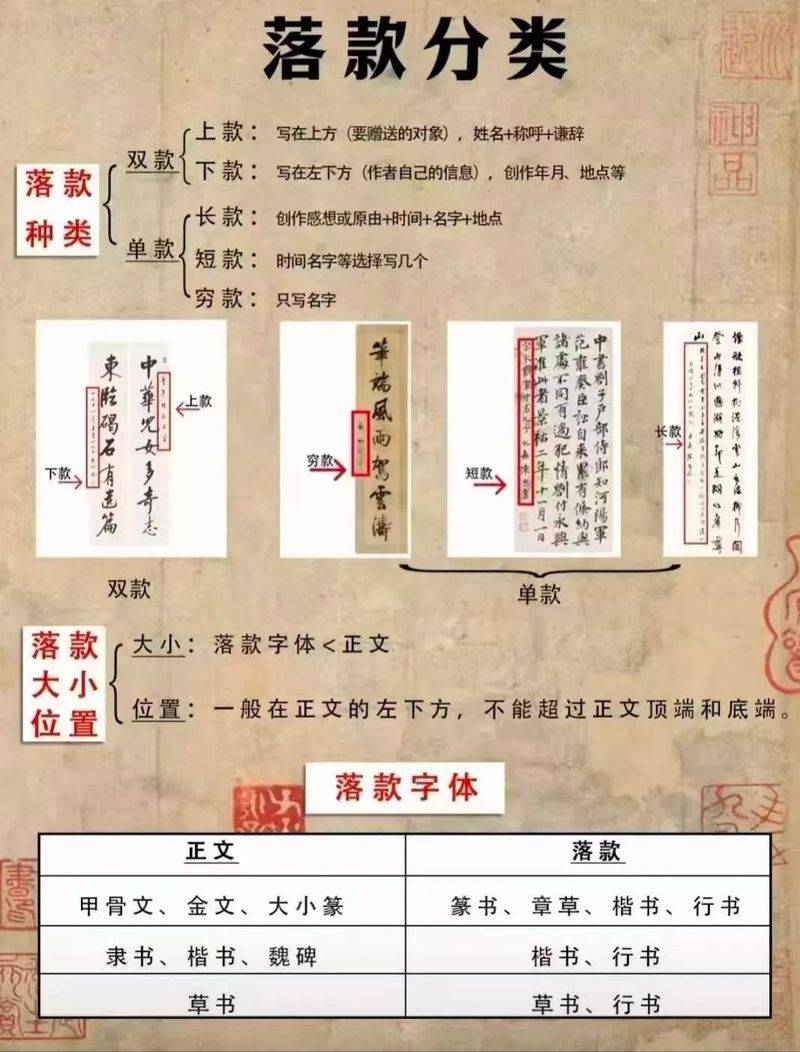 落款分类
落款
种类
双款
上款：写在上方（要赠送的对象），姓名+称呼+谦辞
下款：写在左下方（作者自己的信息），创作年月、地点等
单款
长款：创作感想或原由+时间+名字+地点
短款：时间名字等选择写几个
穷款：只写名字
中華兒女多奇志
東臨碣石有遺篇
上款
下款
筆端風雨駕雲濤
穷款
中書劉子戶部侍郎知河陽軍
范雍奏臣訟自來累有條約與
諸處不同有過犯情劉付永興
軍准此者景祐二年十一月一日
短款
长款
双款
单款
落款
大小
位置
大小：落款字体<正文
位置：一般在正文的左下方，不能超过正文顶端和底端。
落款字体
正文 落款
甲骨文、金文、大小篆 篆书、章草、楷书、行书
隶书、楷书、魏碑 楷书、行书
草书 草书、行书
神品